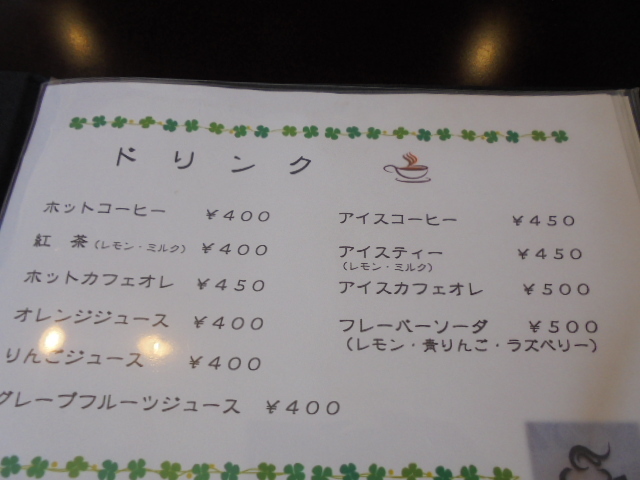 ドリンク
ホットコーヒー ¥400
紅 茶 (レモン・ミルク) ¥400
ホットカフェオレ ¥450
オレンジジュース ¥400
りんごジュース ¥400
グレープフルーツジュース ¥400
アイスコーヒー ¥450
アイスティー ¥450
(レモン・ミルク)
アイスカフェオレ ¥500
フレーバーソーダ ¥500
(レモン・青りんご・ラズベリー)